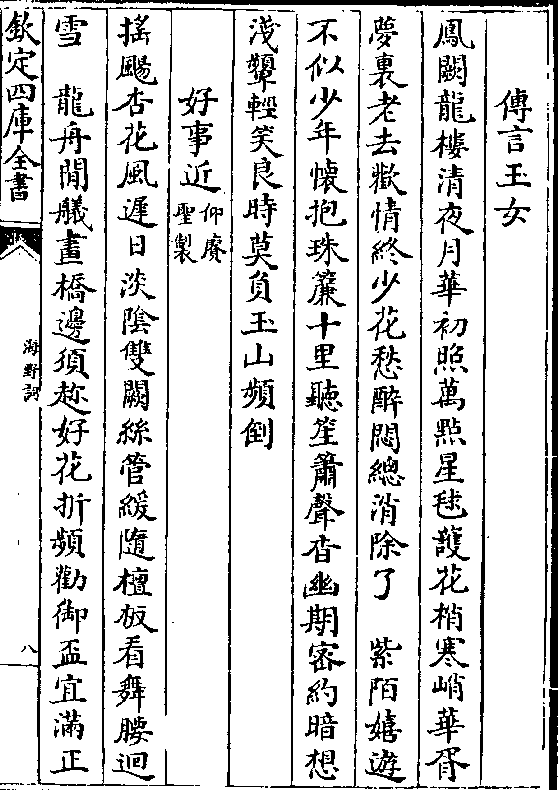 傳言玉女
鳳闕龍樓清夜月華初照萬㸃星毬䕶花梢寒峭華胥
夢裏老去歡情終少花愁醉悶總消除了　紫陌嬉遊
不似少年懐抱珠簾十里聽笙簫聲杳幽期密約暗想
淺顰輕笑良時莫負玉山頻倒
好事近仰賡聖製
揺颺杏花風遲日淡陰雙闕絲管緩隨檀板看舞腰迴
雪　龍舟閒艤畫橋邊須趂好花折頻勸御盃宜滿正
欽定四庫全書
海野詞
八